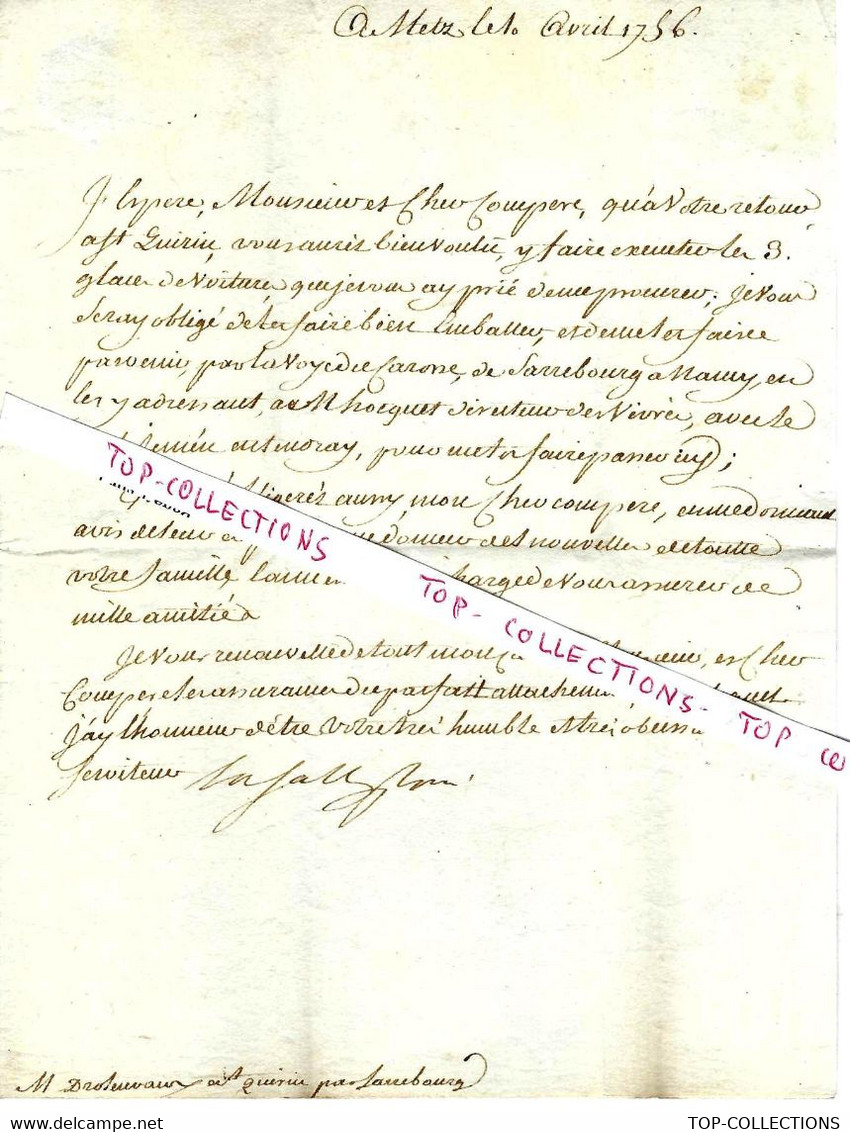 A Metz le 10 Avril 1756.
J'Espere, Monsieur et Cher Compere, qu'a Votre retour
a St Quirin, vous aurés bien voulû, y faire executer les 3.
glaces de Voiture, que je vous ay prié de me procurer; Je vous
seray obligé de les faire bien Emballer, et de me les faire
parvenir, par la Voye du Carosse, de Sarrebourg a Nancy, en
les y adressant, a M hocquet directeur des Vivres, avec le
pour me les faire passer icy;
aussy, mon Cher compere, en me donnant
avis de leur donner des nouvelles de toutte
votre famille, charge de Vous assurer de
mille amitiés
Je Vous renouvelle de tout mon et Cher
Compere les assurances du parfait attachement
j'ay l'honneur d'étre Votre trés humble et trés obeiss
serviteur
M Drolenvaux a St Quirin par Sarrebourg
TOP-COLLECTIONS
TOP- COLLECTIONS- TOP CO
TOP-COLLECTIONS